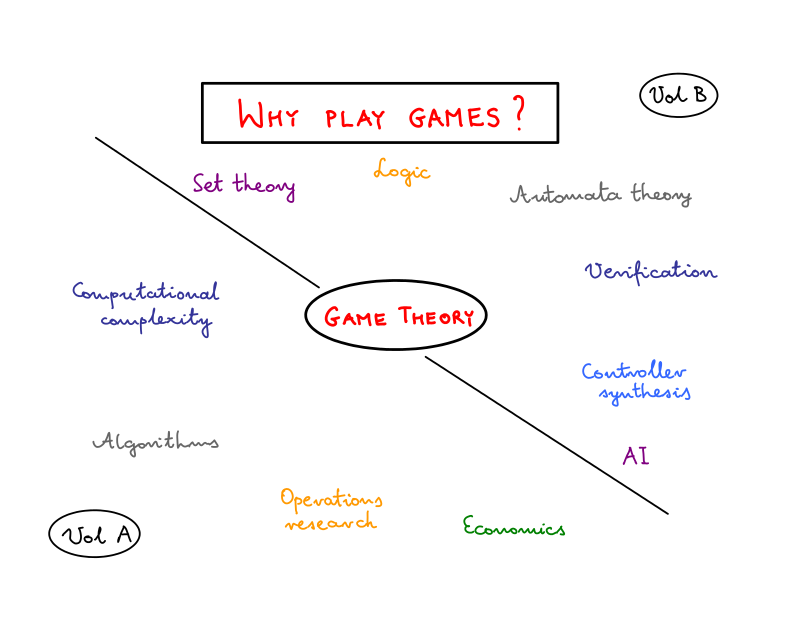 Vol B
WHY PLAY GAMES?
Logic
Set theory
Automata theory
Verification
Computational
complexity
GAME THEORY
Controller
synthesis
Algorithms
AI
Operations
research
Economics
Vol A